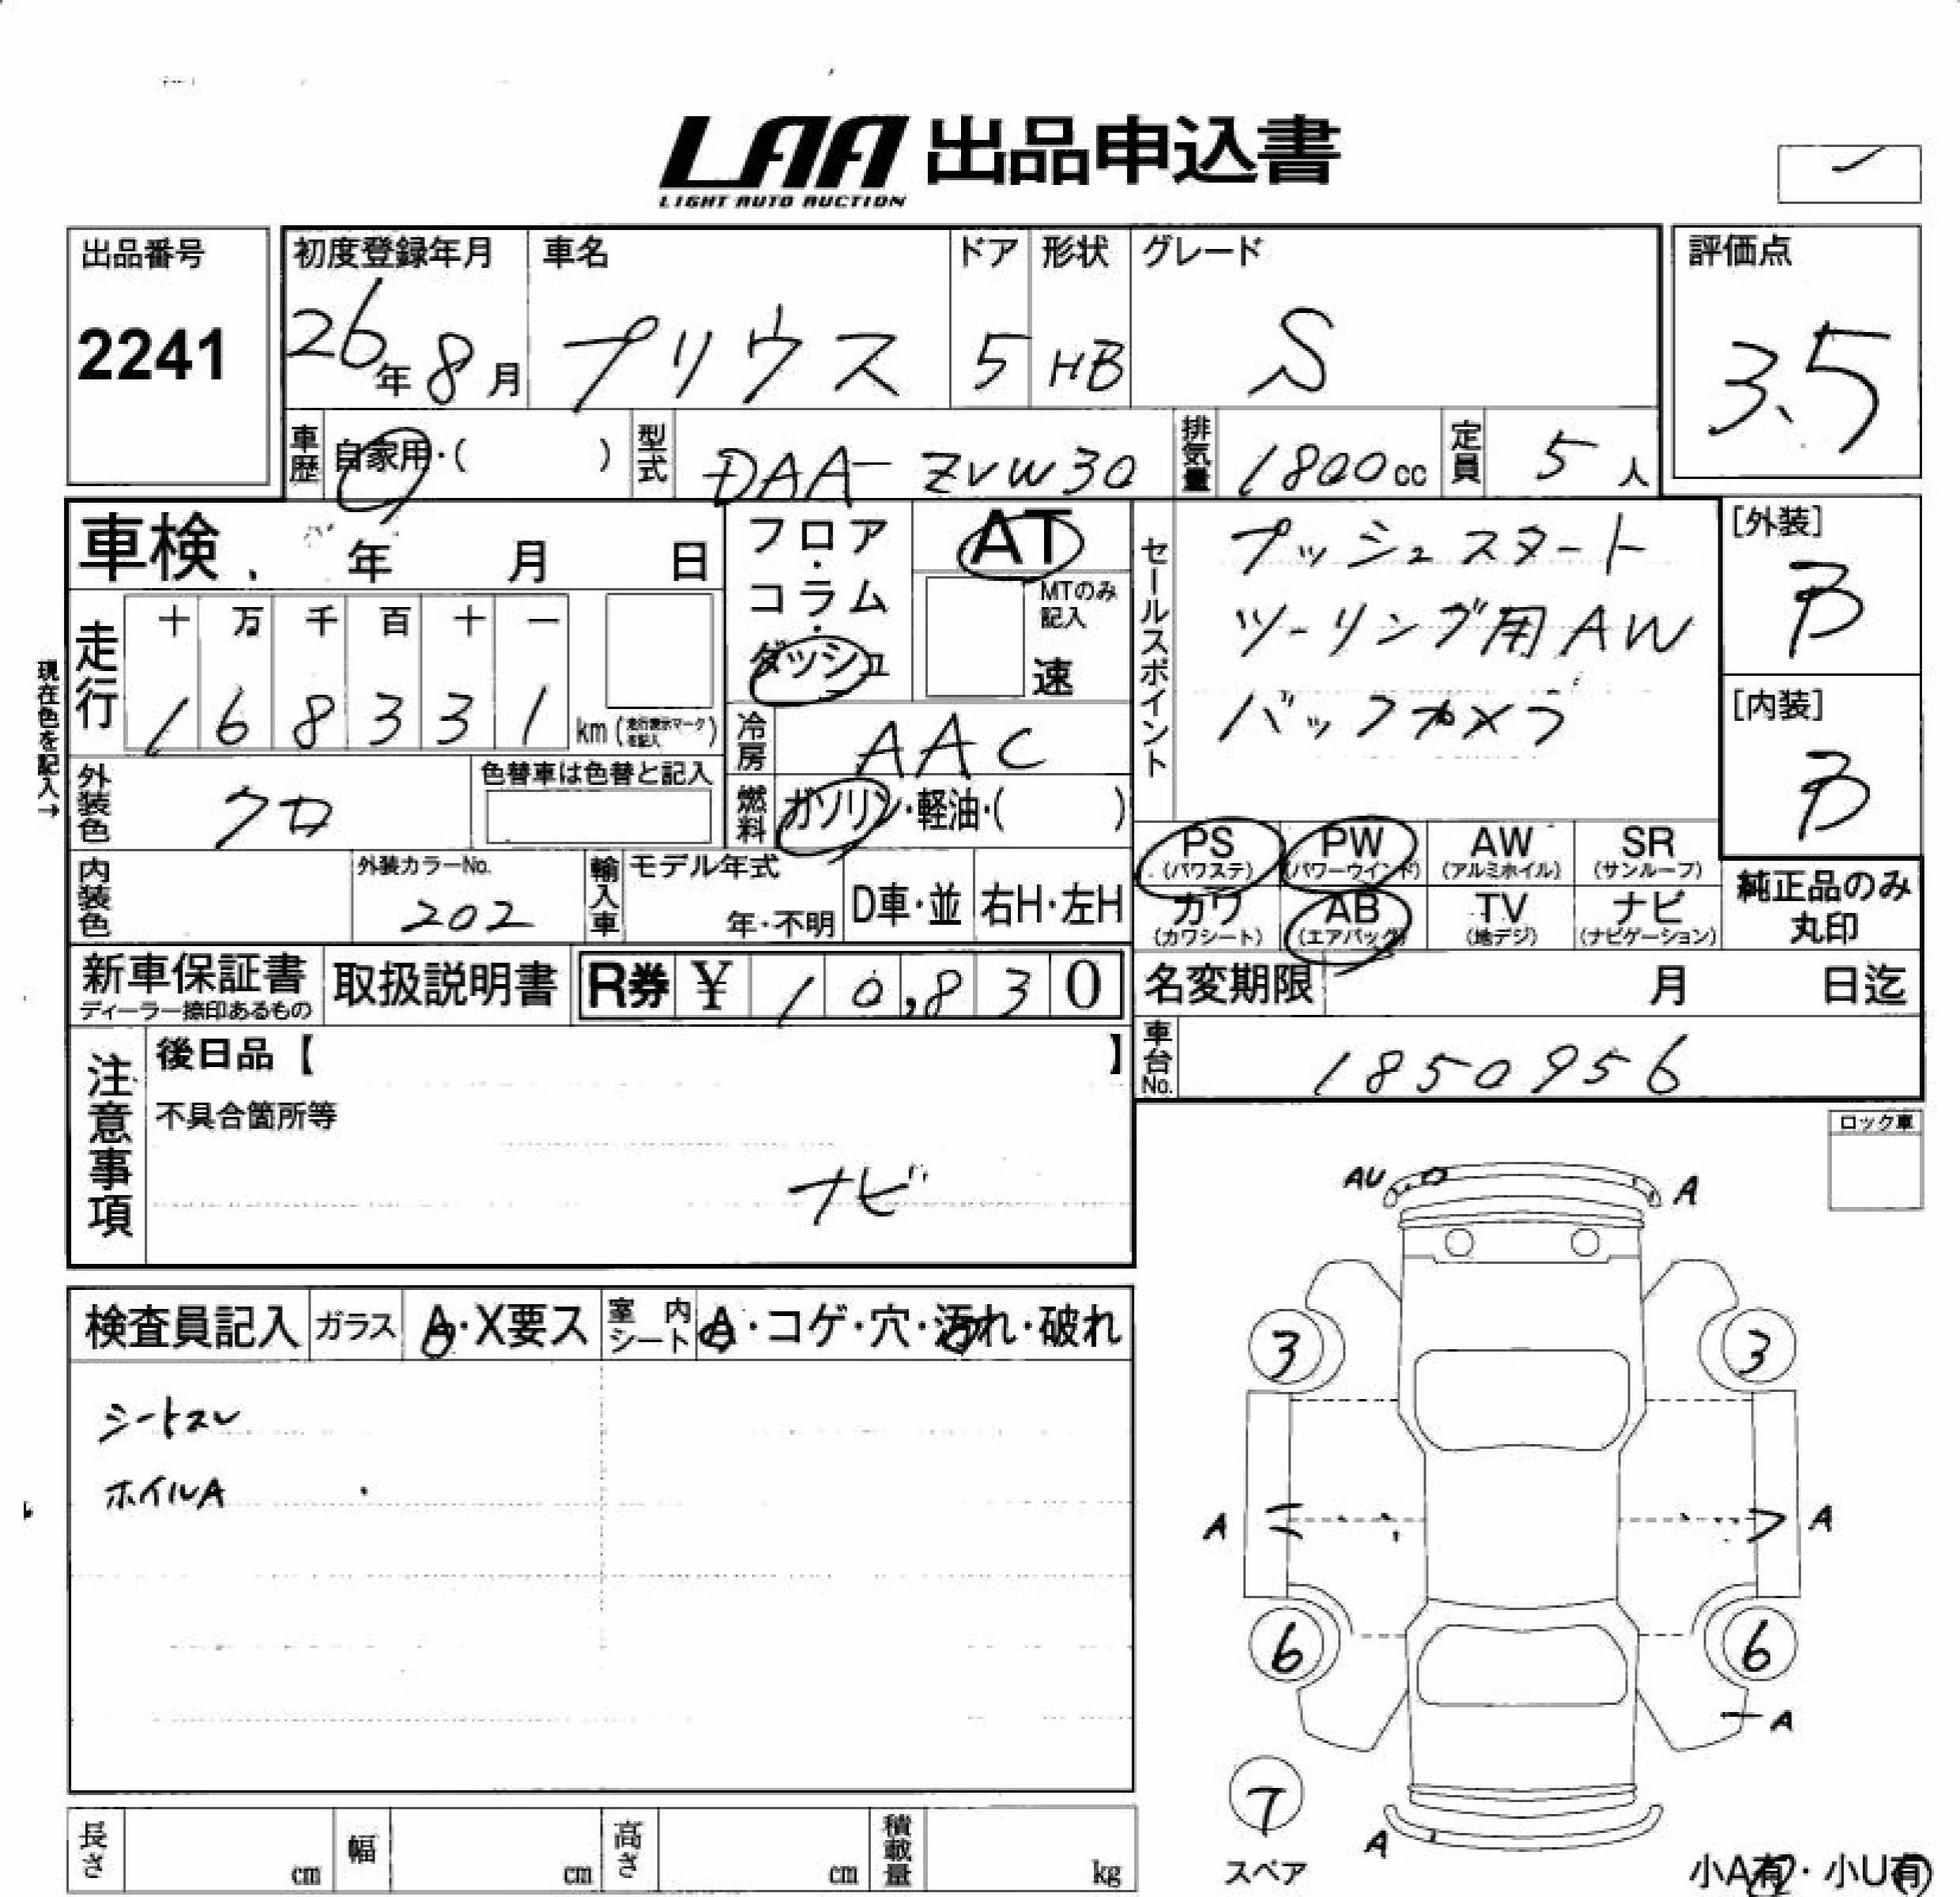 LAA 出品申込書
LIGHT AUTO AUCTION
出品番号
2241
初度登録年月
26年8月
車名
プリウス
ドア
5
形状
HB
グレード
S
評価点
3.5
車歴
自家用・( )
型式
DAA-ZVW30
排気量
1800cc
定員
5人
車検 年 月 日
フロア・コラム・ダッシュ
AT
MTのみ記入
速
セールスポイント
プッシュスタート
ツーリング用AW
バックカメラ
[外装]
B
[内装]
B
現在色を記入→
走行
十 万 千 百 十 一
1 6 8 3 3 1 km(走行表示マークを記入)
冷房
AAC
外装色
クロ
色替車は色替と記入
燃料
ガソリン・軽油・( )
PS (パワステ)
PW (パワーウインド)
AW (アルミホイル)
SR (サンルーフ)
カワ (カワシート)
AB (エアバッグ)
TV (地デジ)
ナビ (ナビゲーション)
純正品のみ
丸印
内装色
外装カラーNo.
202
輸入車
モデル年式
年・不明
D車・並
右H・左H
新車保証書
ディーラー捺印あるもの
取扱説明書
R券 ¥ 10,830
名変期限 月 日迄
車台No.
1850956
注意事項
後日品【 】
不具合箇所等
ナビ
ロック車
AU
A
3
3
A
A
6
6
A
7
スペア
A
小A有・小U有
検査員記入
ガラス
A・X要ス
室内シート
A・コゲ・穴・汚れ・破れ
シートスレ
ホイルA
長さ cm
幅 cm
高さ cm
積載量 kg